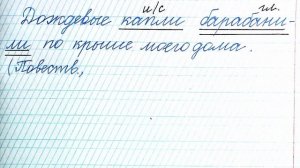 и/с гл.
Дождевые капли барабани-
ли по крыше моего дома.
(Повеств,